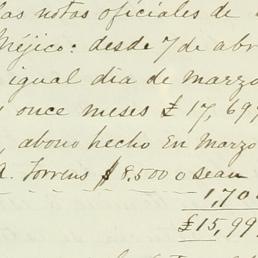 las notas oficiales de
Méjico: desde 7 de abr
igual dia de Marzo
once meses £ 17,697
, abono hecho en Marzo
A. Torrens $ 8.500 o sean
1,70
£15,99